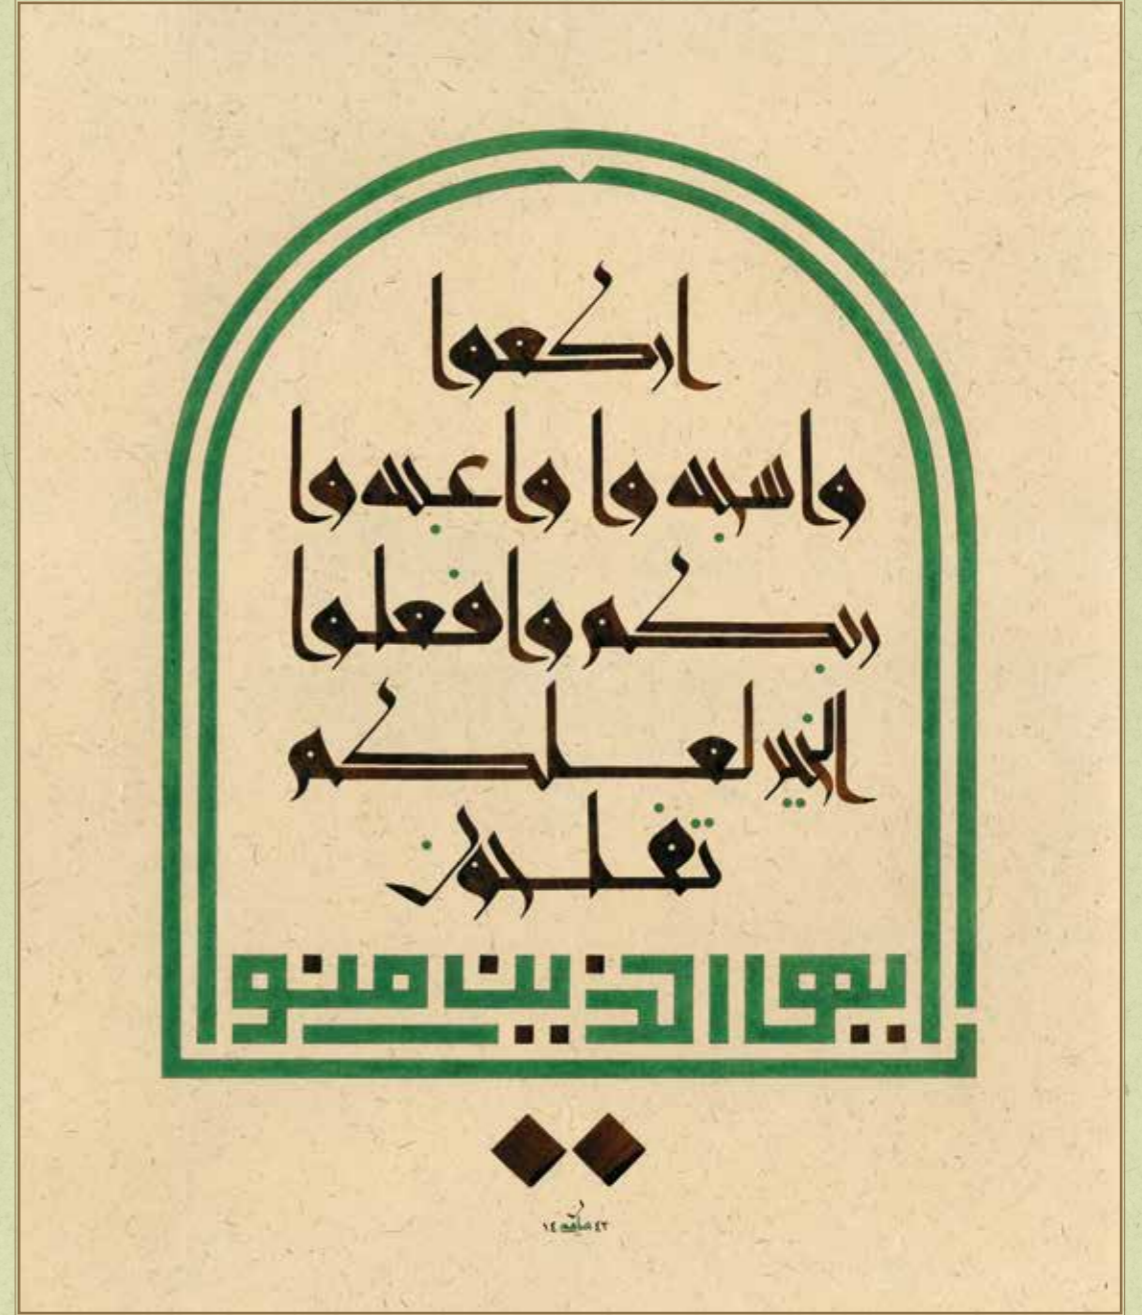 اركعوا
واسجدوا واعبدوا
ربكم وافعلوا
الخير لعلكم
تفلحون
يايها الذين امنوا
١٤٤٢